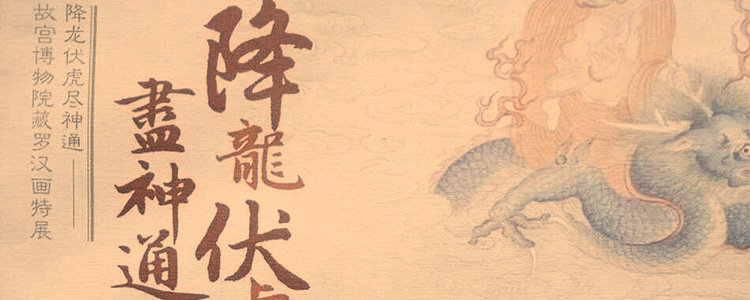 降龍伏
盡神通
降龙伏虎尽神通——
故宫博物院藏罗汉画特展